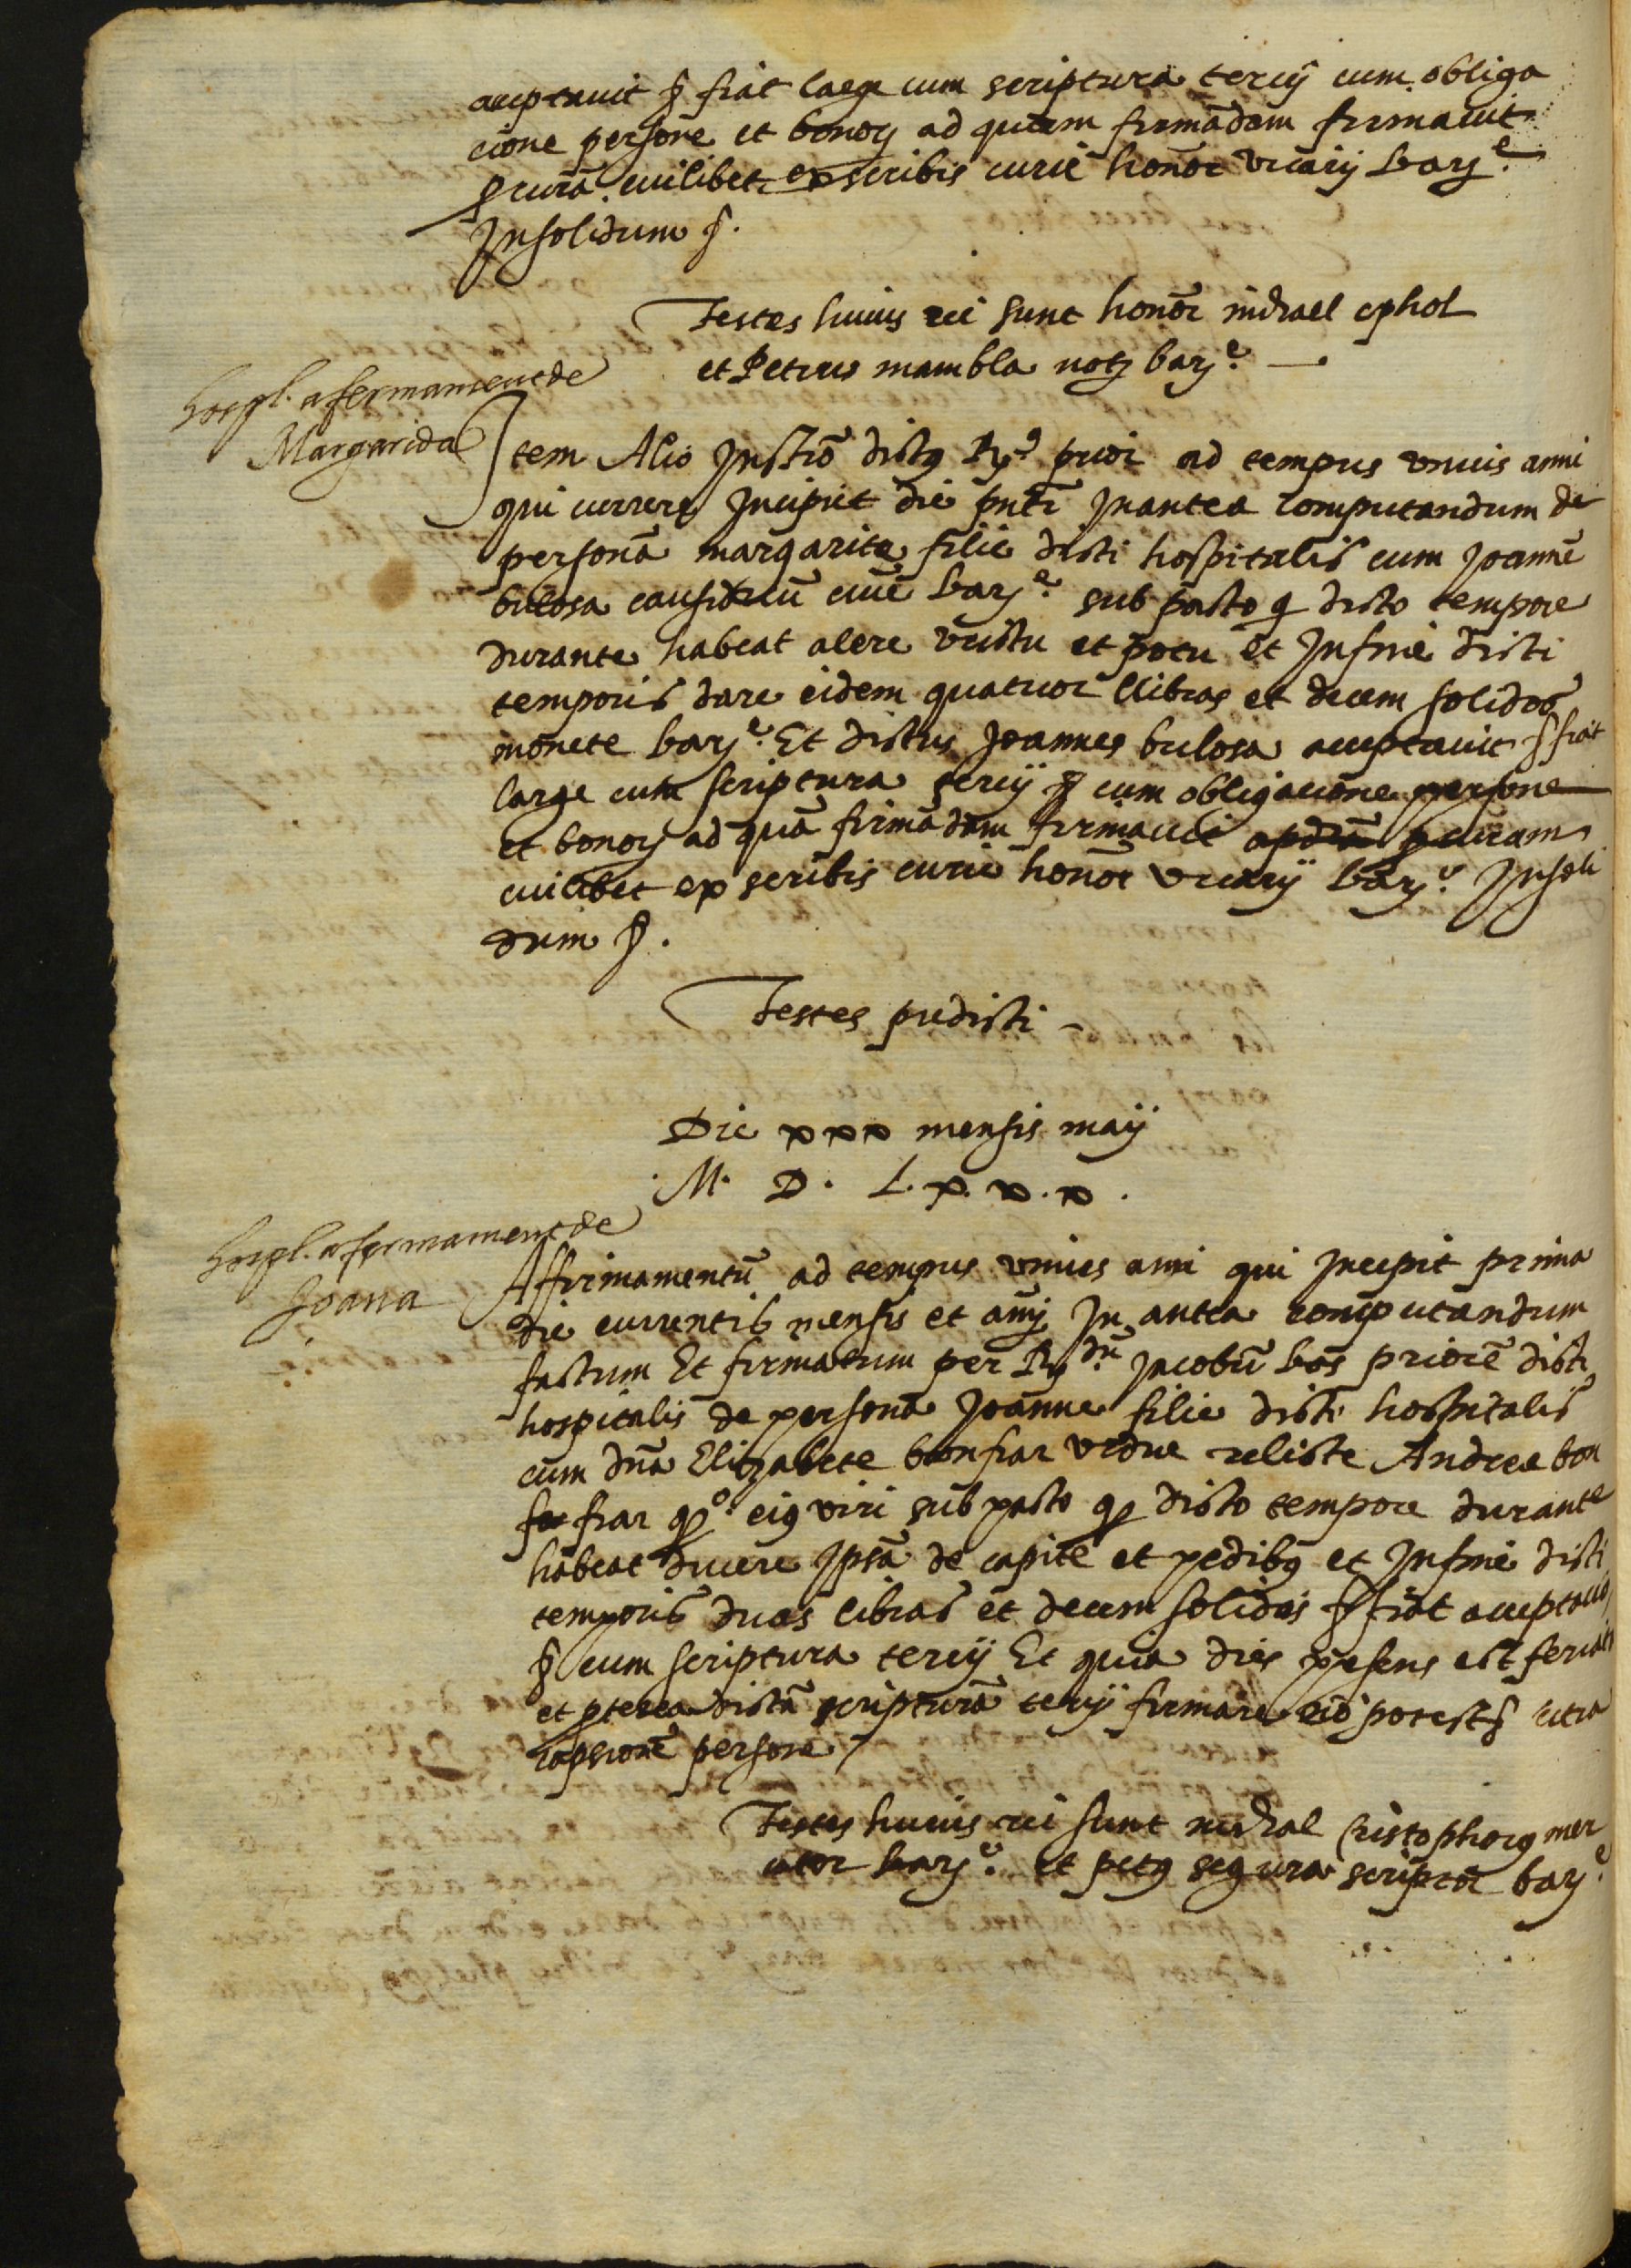 acceptavit § fiat large cum scriptura tercij cum obliga
cione persone et bonoȝ ad quam firmādam firmavit
ꝓcurā cuilibet ex scribis curie honōr vicarij barȝᵉ
Insolidum §.
Testes huius rei sunt honōr michael ophol
et Petrus mambla notȝ barȝᵉ —
hospl. afermament de
Margarida
Item Alio Instrō dictꝰ Rꝰ prior ad tempus vnius anni
qui currere Incipiet die pnti Inantea computandum de
persona margarite filie dicti hospitalis cum Joanne
bulosa causidicū civē barȝᵉ sub pacto ꝙ dicto tempore
durante habeat alere victu et potu et Infine dicti
temporis dare eidem quatuor llibras et decem solidos
monete barȝᵉ. Et dictus Joannes bulosa acceptavit § fiat
large cum scriptura tercij § cum obligacione persone
et bonoȝ ad quā firmādam firmavit ꝓcuram
cuilibet ex scribis curie honōr vicarij barȝᵉ Insoli
dum §.
Testes predicti -
Die xxx mensis maij
M. D. L. x. x. x.
hospl. afermament de
Joana
Affirmamentū ad tempus vnius anni qui Incepit prima
die currentis mensis et anȳ In antea computandum
factum Et firmatum per Rȝ dn̄ Jacobū bos priorē dicti
hospitalis de persona Joanne filie dicti hospitalis
cum dnā Elizabete bonfiar vidue relicte Andree bon
fiar qº. eiꝰ viri sub pacto ꝙ dicto tempore durante
habeat ducere Ipsā de capite et pedibꝰ et Infine dicti
temporis duas libras et decem solidos § fiat acceptavit
§ cum scriptura tercij Et quia dies presens est feriatꝰ
et ꝓterea dictā scripturā tercij firmare nō potest § citra
capcionē persone
Testes huius rei sunt michael Cristophorꝰ mer
cator barȝᵉ. et petꝰ segura scriptor barȝᵉ